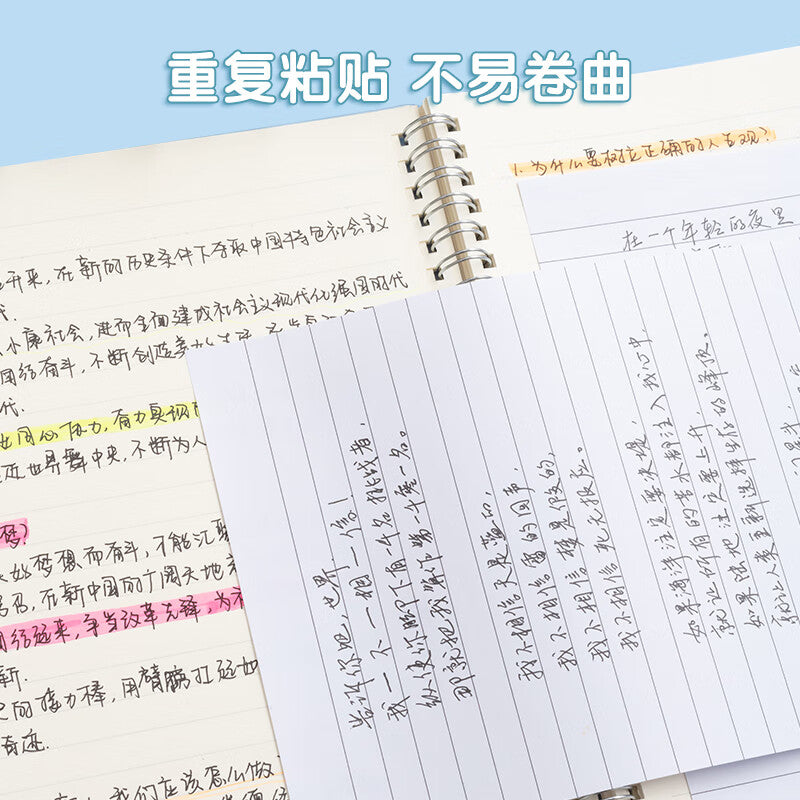 重复粘贴 不易卷曲
开来,在新的历史条件下夺取中国特色社会主义
代.
小康社会,进而全面建成社会主义现代化强国的时代
团结奋斗,不断创造美好生活
代.
同心协力,奋力实现
近世界舞中央,不断为人
梦?
梦想而奋斗,不能汇聚
召,在新中国的广阔天地
团结起来,争当改革先锋,为
新.
的接力棒,用臂膀扛起如
奇迹.
我们应该怎么做
1.为什么要树立正确的人生观?
在一个年轻的夜里
告诉你吧,世界,
我一不一相一信!
纵使你脚下有一千名挑战者,
那就把我算作第一千零一名。
我不相信天是蓝的,
我不相信雷的回声,
我不相信梦是假的,
我不相信死无报应。
如果海洋注定要决堤,
就让所有的苦水都注入我心中,
如果陆地注定要上升,
就让人类重新选择生存的峰顶。